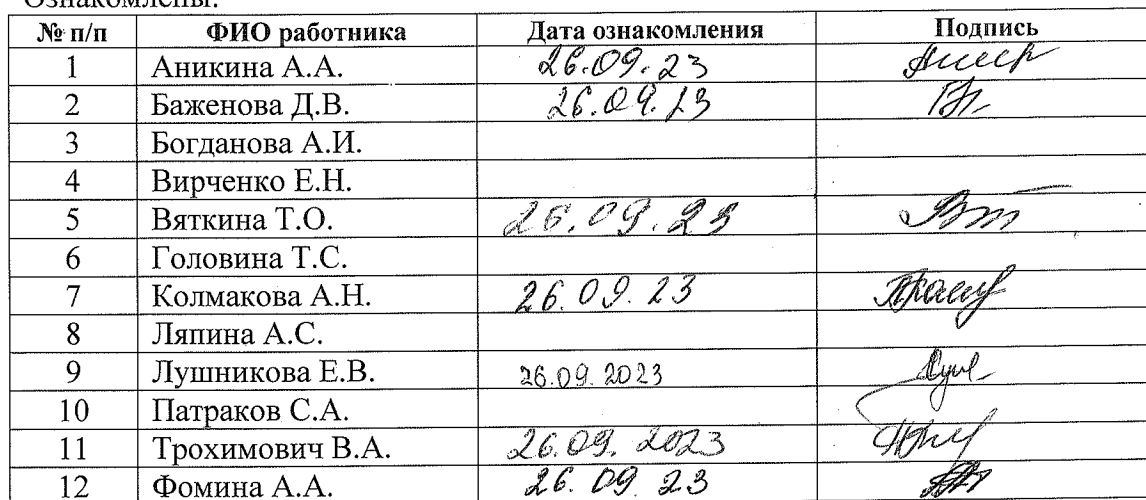 Ознакомлены:
№ п/п ФИО работника Дата ознакомления Подпись
1 Аникина А.А. 26.09.23
2 Баженова Д.В. 26.09.23
3 Богданова А.И.
4 Вирченко Е.Н.
5 Вяткина Т.О. 26.09.23
6 Головина Т.С.
7 Колмакова А.Н. 26.09.23
8 Ляпина А.С.
9 Лушникова Е.В. 26.09.2023
10 Патраков С.А.
11 Трохимович В.А. 26.09.2023
12 Фомина А.А. 26.09.23